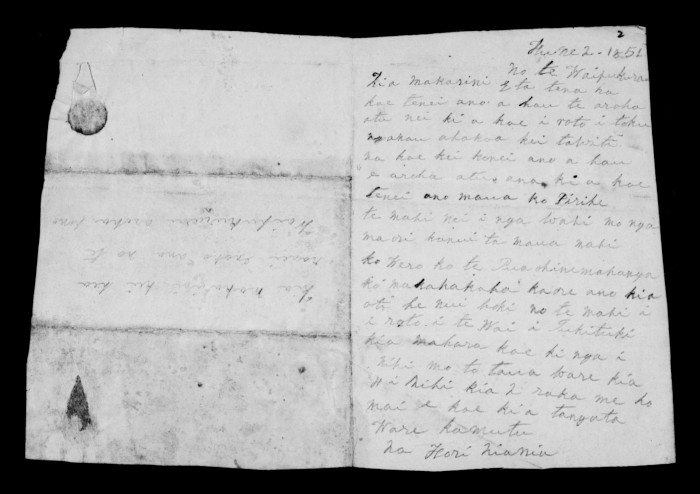 2
Hune 2 - 1851
No te Waipukurau
Kia makarini e ta tena ra
koe tenei ano a hau te aroha
atu nei ki a koe i roto i toku
ngakau ahakoa kei tawiti
na koe kei konei ano a hau
e aroha atu ana ki a koe
tenei ano maua ko Pirihe
te mahi nei i nga wahi mo nga
maori ka nui ta maua mahi
ko Wero ko te
ko mahahakahai kaore ano kia
oti he nui hoki no te mahi i
i roto i te Wai i Tukituki
kia mahara koe ki nga i
Nihi mo to taua ware kia
Wi Nihi kia 2 raka me ho
mai e koe ki a tangata
Ware ka mutu
Na Hori Niania
Kia makarini kei kea
ano no te
Waipukurau aroha